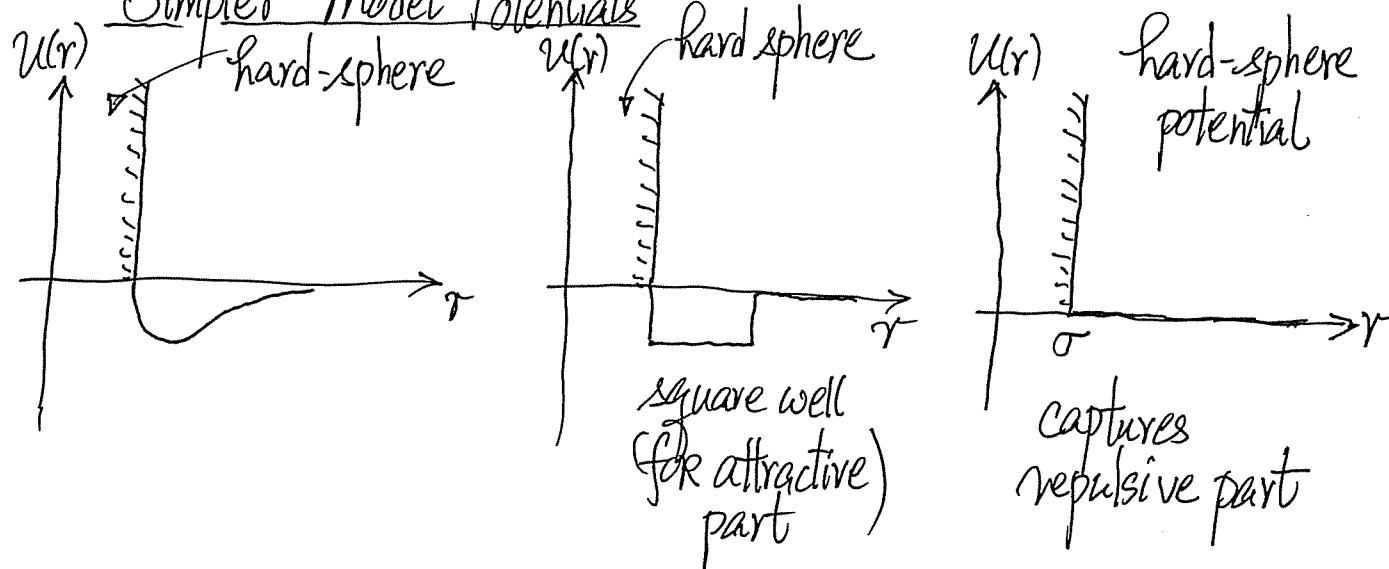 Simpler Model Potentials
U(r)
hard-sphere
r
U(r)
hard sphere
r
square well
(for attractive)
part
U(r)
hard-sphere
potential
σ
r
captures
repulsive part